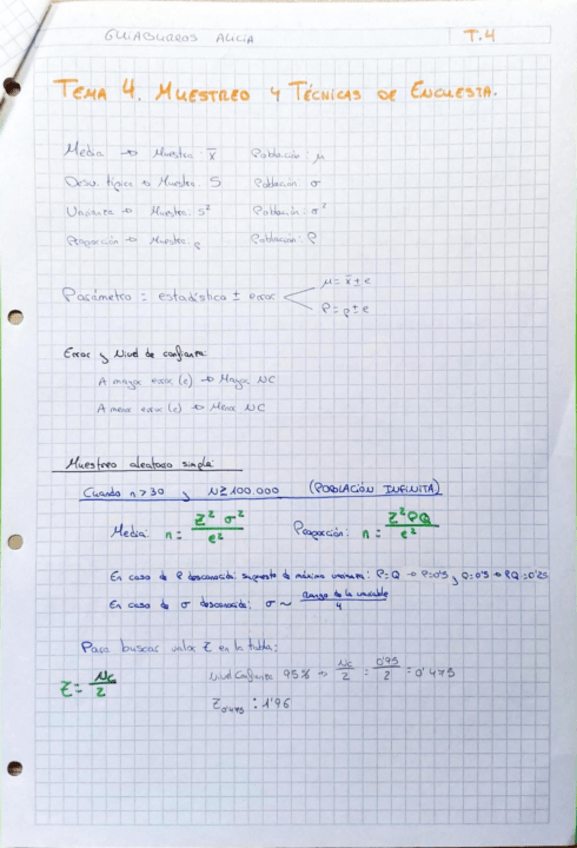 GUIABURROS ALICIA T.4
TEMA 4. MUESTREO Y TÉCNICAS DE ENCUESTA.
Media → Muestra: x̄ Población: μ
Desv. típica → Muestra: S Población σ
Varianza → Muestra: S² Población: σ²
Proporción → Muestra: p Población: P
Parámetro = estadístico ± error
μ = x̄ ± e
P = p ± e
Error y Nivel de confianza:
A mayor error (e) → Mayor NC
A menor error (e) → Menor NC
Muestreo aleatorio simple:
Cuando n > 30 y N ≥ 100.000 (POBLACIÓN INFINITA)
Media: n = Z² σ² / e² Proporción: n = Z² PQ / e²
En caso de P desconocida: supuesto de máxima varianza: P=Q → P=0'5 y Q=0'5 → PQ=0'25
En caso de σ desconocida: σ ~ Rango de la variable / 4
Para buscar valor Z en la tabla:
Z = Nc / 2
Nivel Confianza 95% → Nc / 2 = 0'95 / 2 = 0'475
Z0'475 : 1'96